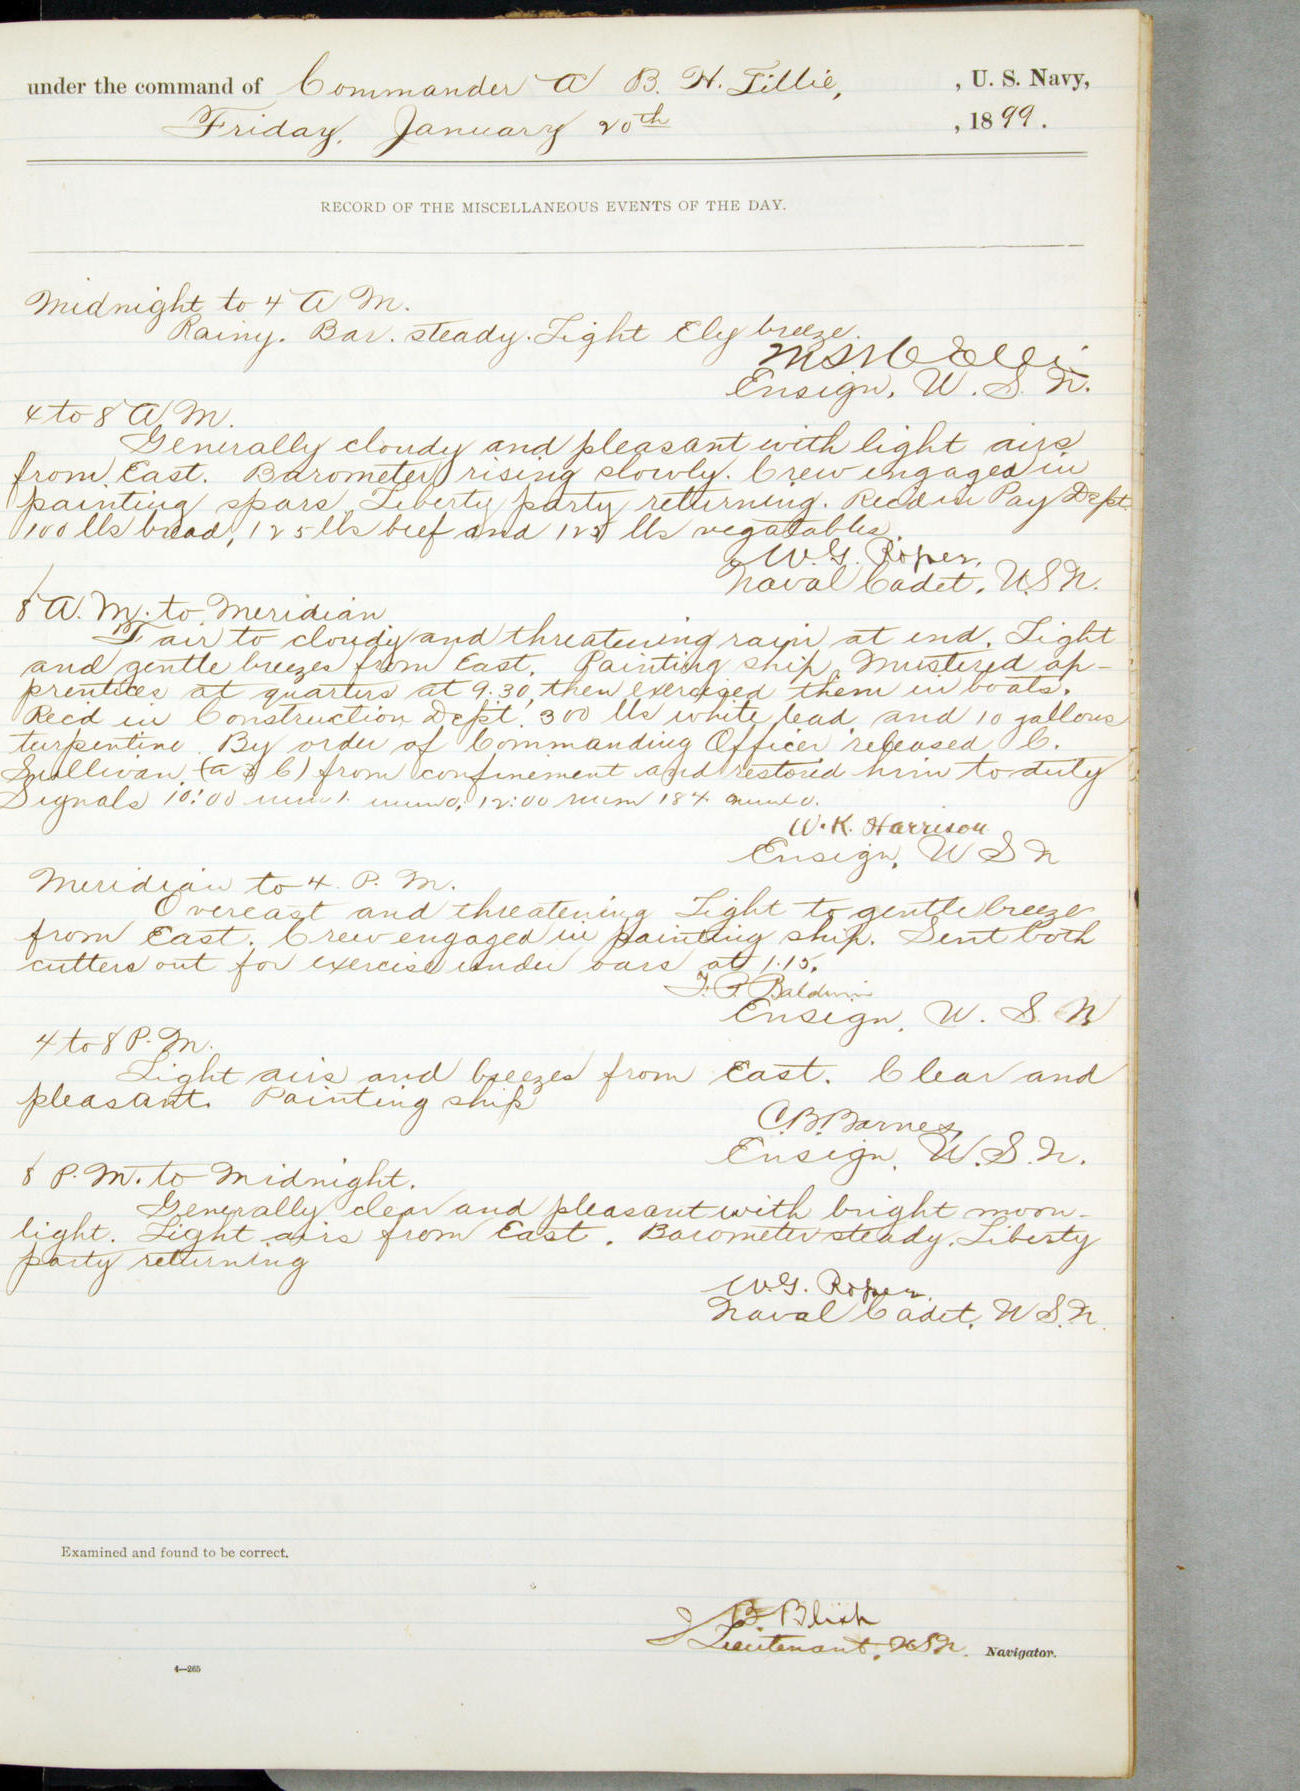 under the command of Commander A B. H. Lillie, , U. S. Navy,
Friday, January 20th , 1899.
RECORD OF THE MISCELLANEOUS EVENTS OF THE DAY.
Midnight to 4 A M.
Rainy. Bar. steady. Light Ely breeze.
Ensign, U. S. N.
4 to 8 A M.
Generally cloudy and pleasant with light airs
from East. Barometer rising slowly. Crew engaged in
painting spars. Liberty party returning. Rec'd in Pay Dept.
100 lbs bread, 125 lbs beef and 125 lbs vegatables.
W. G. Roper,
Naval Cadet, U.S.N.
8 A. M. to Meridian
Fair to cloudy and threatening rain at end. Light
and gentle breezes from East. Painting ship. Mustered ap-
prentices at quarters at 9.30, then exercised them in boats.
Rec'd in Construction Dept. 300 lbs white lead and 10 gallons
turpentine. By order of Commanding Officer released C.
Sullivan (a 3 C) from confinement and restored him to duty
Signals 10:00 num 1. 12:00 num 184
W. K. Harrison
Ensign, U S N
Meridian to 4 P. M.
Overcast and threatening Light to gentle breeze
from East. Crew engaged in painting ship. Sent both
cutters out for exercise under oars at 1.15.
Baldwin
Ensign, U. S. N
4 to 8 P. M.
Light airs and breezes from East. Clear and
pleasant. Painting ship
C. B. Barnes,
Ensign, U. S. N.
8 P. M. to Midnight.
Generally clear and pleasant with bright moon-
light. Light airs from East. Barometer steady. Liberty
party returning
W. G. Roper,
Naval Cadet, U S. N.
Examined and found to be correct.
J B. Blish
Lieutenant, U S N. Navigator.
4—265